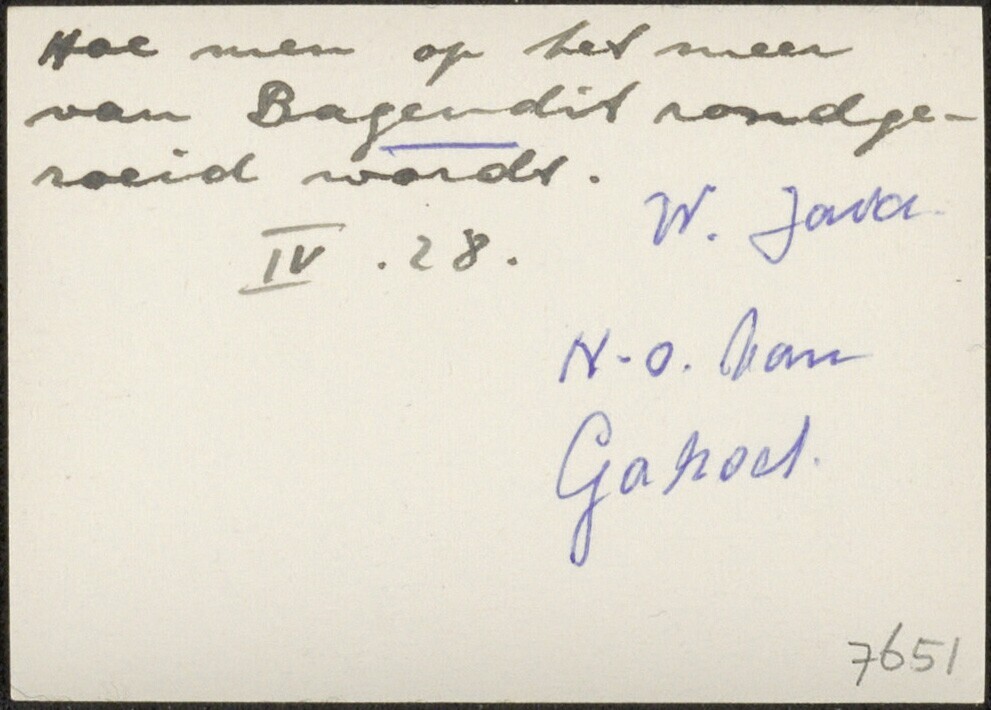 Hoe men op het meer
van Bagendit rondge-
roeid wordt.
W. Java.
IV.28.
N-O. van
Garoet.
7651